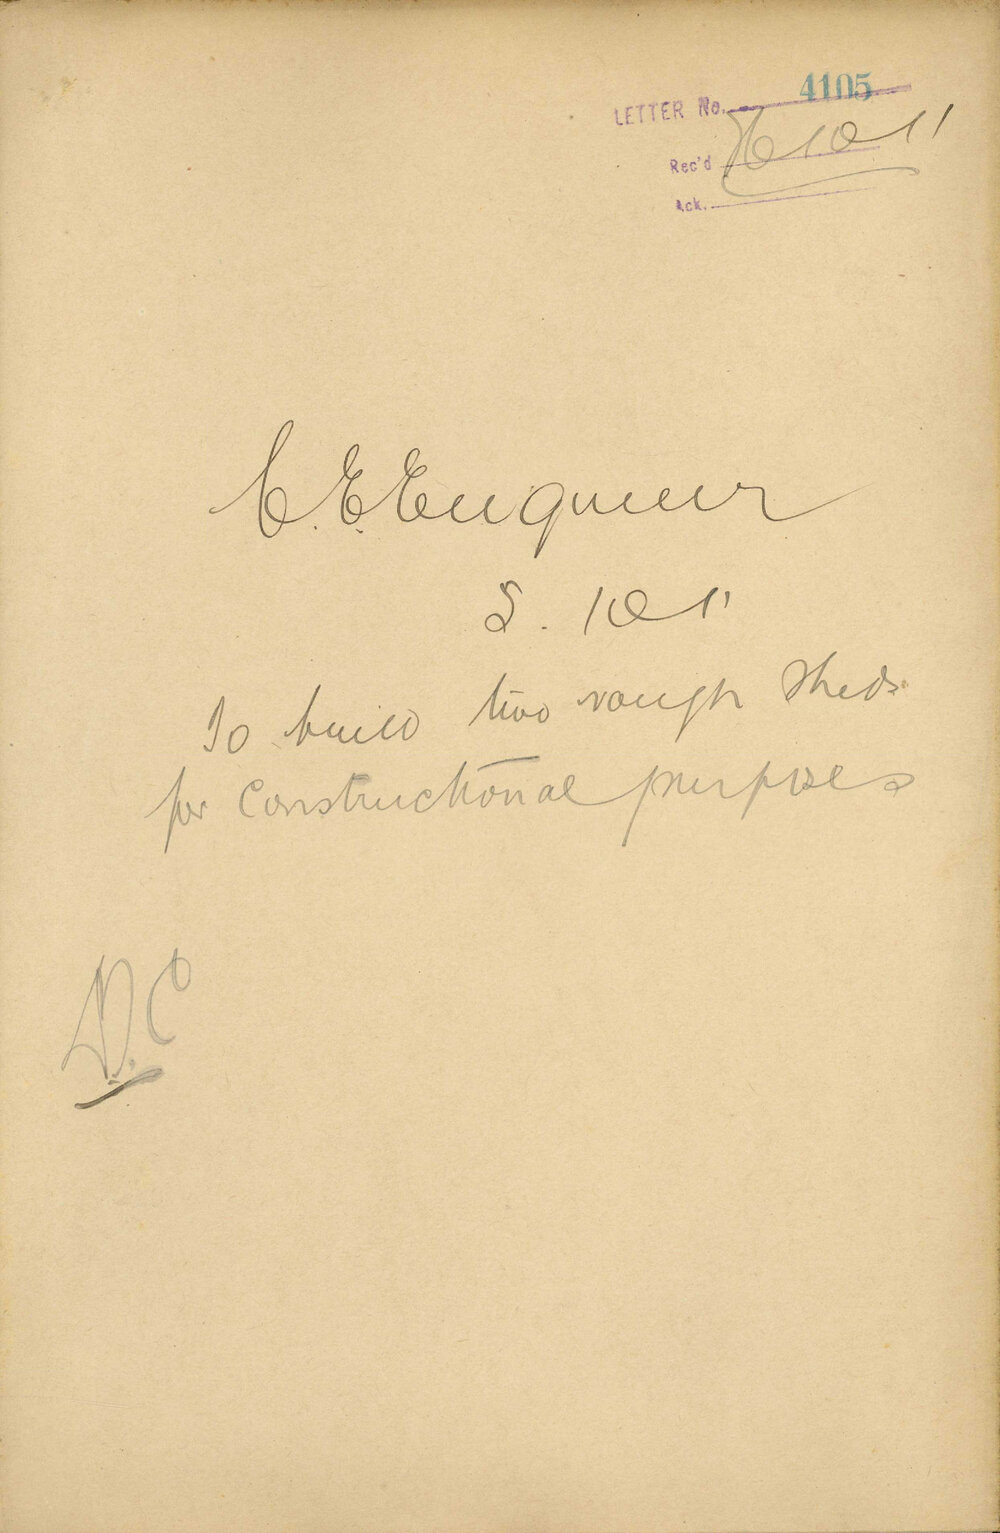 LETTER No. 4105
Rec'd 6 10 11
Ack.
C. E. Engineer
5. 10 11
To build two rough sheds
for constructional purposes
D. C